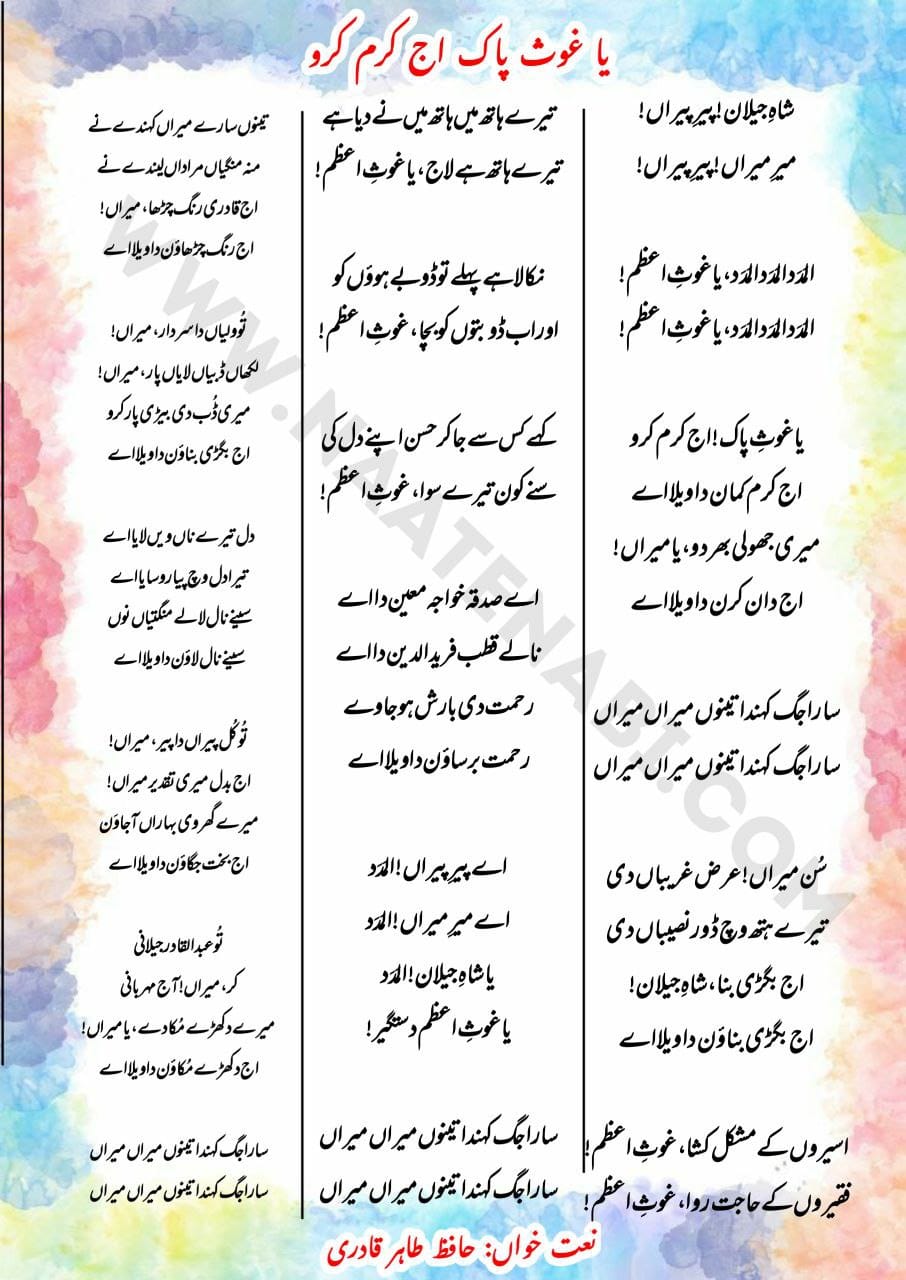 یا غوث پاک اج کرم کرو
شاہِ جیلان! پیرِ پیراں!
میرِ میراں! پیرِ پیراں!
المَدَد المَدَد المَدَد، یا غوثِ اعظم!
المَدَد المَدَد المَدَد، یا غوثِ اعظم!
یا غوثِ پاک! اج کرم کرو
اج کرم کمان دا ویلا اے
میری جھولی بھر دو، یا میراں!
اج دان کرن دا ویلا اے
سارا جگ کہندا تینوں میراں میراں
سارا جگ کہندا تینوں میراں میراں
سُن میراں! عرض غریباں دی
تیرے ہتھ وچ ڈور نصیباں دی
اج بگڑی بنا، شاہِ جیلان!
اج بگڑی بناؤن دا ویلا اے
اسیروں کے مشکل کشا، غوثِ اعظم!
فقیروں کے حاجت روا، غوثِ اعظم!
تیرے ہاتھ میں ہاتھ میں نے دیا ہے
تیرے ہاتھ ہے لاج، یا غوثِ اعظم!
نکالا ہے پہلے تو ڈوبے ہوؤں کو
اور اب ڈوبتوں کو بچا، غوثِ اعظم!
کہے کس سے جا کر حسن اپنے دل کی
سنے کون تیرے سوا، غوثِ اعظم!
اے صدقہ خواجہ معین دا اے
نالے قطب فرید الدین دا اے
رحمت دی بارش ہو جاوے
رحمت برساؤن دا ویلا اے
اے پیرِ پیراں! المَدَد
اے میرِ میراں! المَدَد
یا شاہِ جیلان! المَدَد
یا غوثِ اعظم دستگیر!
سارا جگ کہندا تینوں میراں میراں
سارا جگ کہندا تینوں میراں میراں
تینوں سارے میراں کہندے نے
منہ منگیاں مراداں لیندے نے
اج قادری رنگ چڑھا، میراں!
اج رنگ چڑھاؤن دا ویلا اے
تُو ولیاں دا سردار، میراں!
لکھاں ڈبیاں لایاں پار، میراں!
میری ڈُب دی بیڑی پار کرو
اج بگڑی بناؤن دا ویلا اے
دل تیرے ناں ویں لایا اے
تیرا دل وچ پیار وسایا اے
سینے نال لالے منگتیاں نوں
سینے نال لاؤن دا ویلا اے
تُو کُل پیراں دا پیر، میراں!
اج بدل میری تقدیر میراں!
میرے گھر وی بہاراں آ جاؤن
اج بخت جگاؤن دا ویلا اے
تُو عبد القادر جیلانی
کر، میراں! آج مہربانی
میرے دکھڑے مُکا دے، یا میراں!
اج دکھڑے مُکاؤن دا ویلا اے
سارا جگ کہندا تینوں میراں میراں
سارا جگ کہندا تینوں میراں میراں
نعت خواں: حافظ طاہر قادری
WWW.NAATENABI.COM